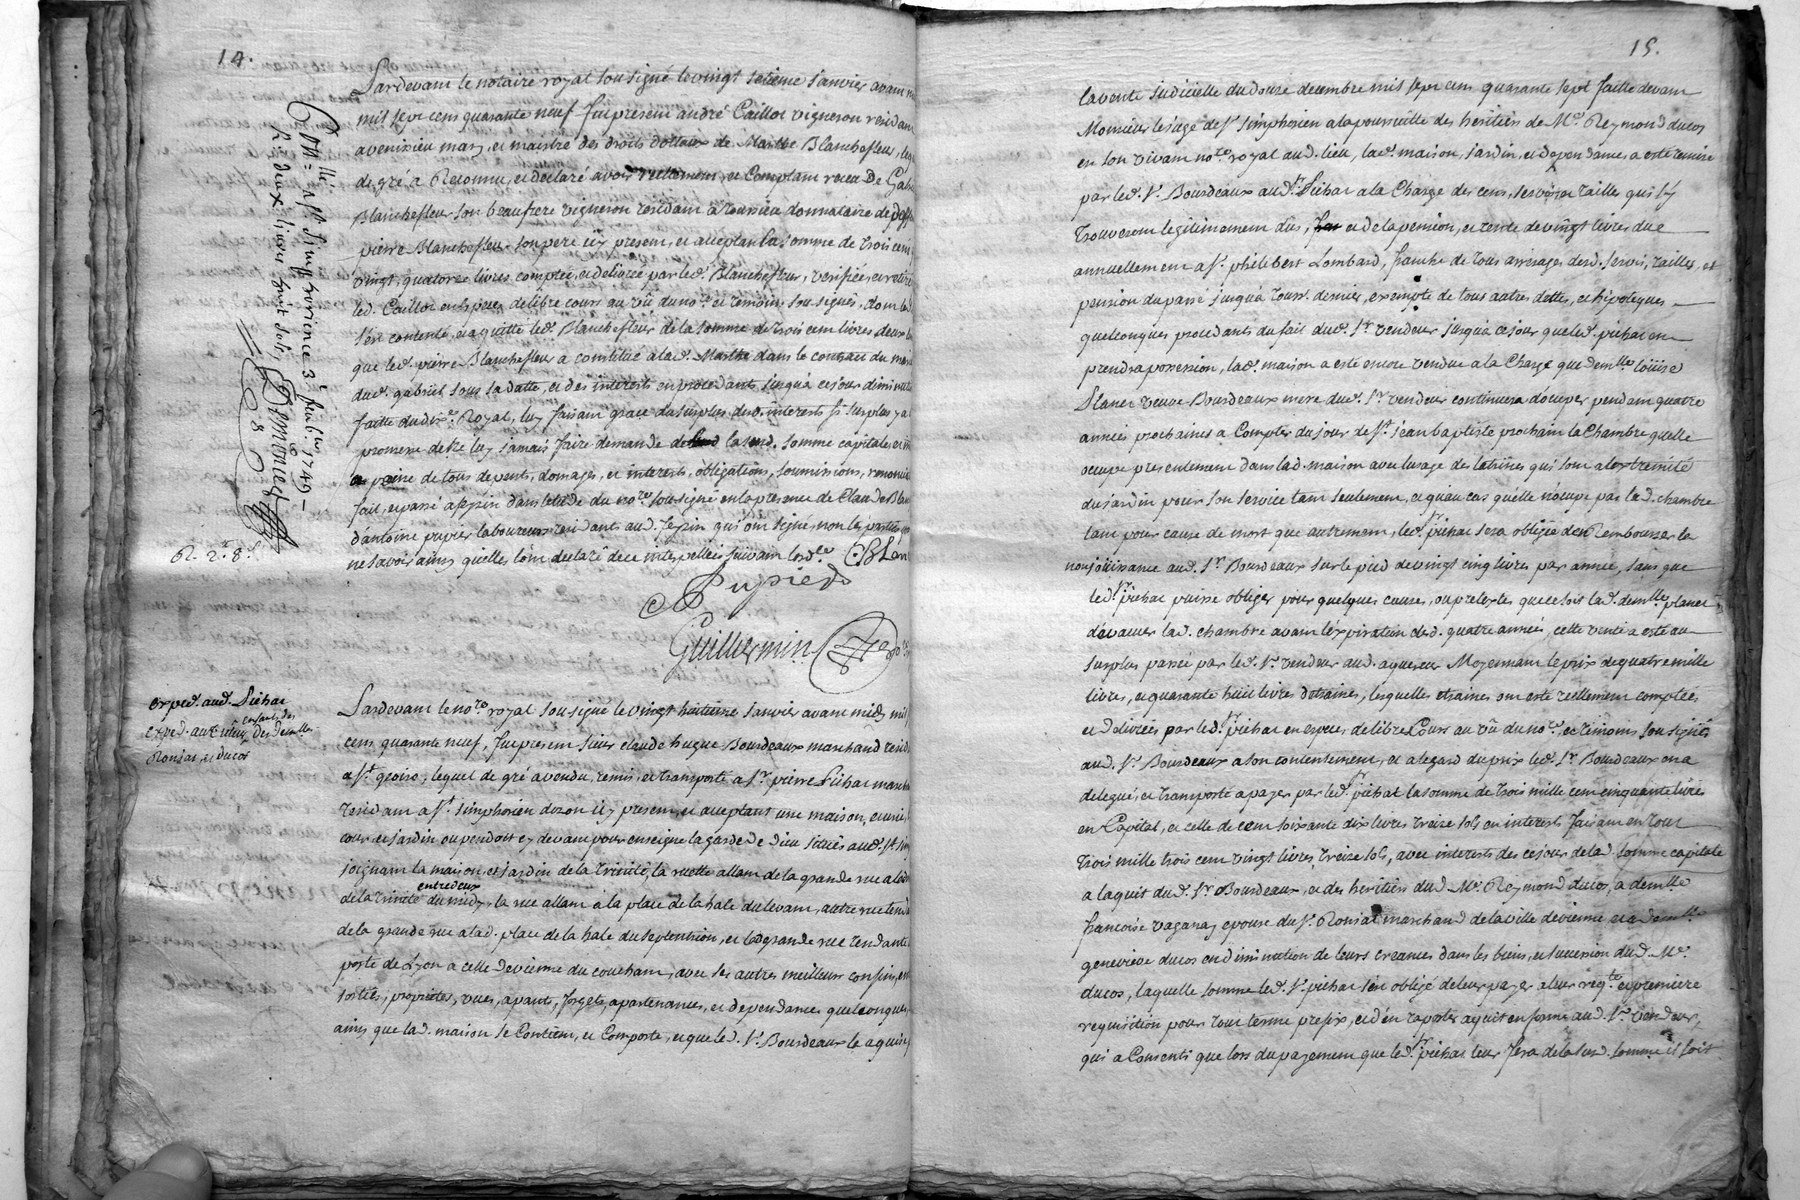 14.
Pardevant le notaire royal sousigné le vingt setieme Janvier avant
mil sept cens quarante neuf fut present andré Caillot vigneron residant
a venissieu mary, et maistre des droits dottaux de Marthe Blanchefleur,
de gré a Reconnu, et declaré avoir reellement, et Comptant receu De
Blanchefleur son beaufrere vigneron residant a donnataire de
pierre Blanchefleur son pere icy present, et acceptant la somme de trois cent
vingt, quatorze livres comptée, et delivrée par led. Blanchefleur, verifiée, et retirée
led. Caillot en Especes de libre cours au vû du no.re et temoins sousignés, dont led.
s'en contente, et a quitté led. Blanchefleur de la somme de trois cent livres
que led. pierre Blanchefleur a constitué a lad. Marthe dans le contrat du
dud. gabriel sous sa datte, et des interests en procedants jusqu'a ce jour
faitte du dix.e Royal, luy faisant grace du surplus desd. interests si surplus y a
promene de ne luy jamais faire demande de lasusd. somme capitale
a peine de tous depents, domages, et interests, obligations, soumissions,
fait, et passé a sepin dans letude du no.re sousigné en la presence de Claude
d'antoine pupier laboureurs residants aud. sepin qui ont signé non les parties
ne savoir ainsy quelles l'ont declaré de ce interpellées suivant lord.ce C. Blan
Pupier
Guillermin no.re
Con.llé a S.t Simph. d'ozon ce 3.e feuvrier 1749
R. deux livres huit sols,
R. 2.# 8.s
exped. aud. Pichat
exped. aux enfants des dem.lles
Ronsat, et ducos
Pardevant le no.re royal sousigné le vingt huitieme Janvier avant midy mil
cens quarante neuf, fut present sieur claude hugue Bourdeaux marchand
a S.t george, lequel de gré a vendu, remis, et transporté a S.r pierre Pichat
residant a S.t Simphorien dozon icy present, et acceptant une maison,
cour, et Jardin ou pendoit cy devant pour enseigne la garde de dieu situés aud. S.t
joignant la maison, et jardin de la trinité, la ruette allant de la grande rue
de la trinité entredeux du midy, la rue allant a la place de la hale du levant, autre rue
de la grande rue a lad. place de la hale du septentrion, et la grande rue tendante
porte de Lyon a celle de vienne du couchant, avec ses autres meilleurs confins,
sorties, proprietés, vues, apants, forgets, apartenances, et dependances quelconques,
ainsy que lad. maison se Contient, et Comporte, et que led. S.r Bourdeaux la
15.
la vente judicielle du douze decembre mil sept cent quarante sept faitte devant
Monsieur le juge de S.t Simphorien a la poursuitte des heritiers de M.e Reymond ducos
en son vivant no.re royal aud. lieu, lad. maison, jardin, et dependances a esté remise
par led. S.r Bourdeaux aud. S.r Pichat a la Charge des cens, servis, et tailles qui s'y
trouveront legitimement dus, et de la pension, et rente de vingt livres due
annuellement a S.r philibert Lombard, franche de tous arrerages desd. servis, tailles, et
pension du passé jusqua touss. dernier, exempte de tous autres dettes, et hipoteques
quelconques procedants du fait dud. S.r vendeur jusqua ce jour que led. pichat en
prendra possession, lad. maison a esté encore vendue a la Charge que dem.lle Louise
Planet veuve Bourdeaux mere dud. S.r vendeur continuera d'occuper pendant quatre
années prochaines a Compter du jour de S.t jean baptiste prochain la Chambre quelle
occupe presentement dans lad. maison avec lusage des latrines qui sont a lextremité
du jardin pour son service tant seulement, et qu'au cas qu'elle n'occupe pas lad. chambre
tant pour cause de mort que autrement, led. S.r pichat sera obligé de Rembourser la
non jouissance aud. S.r Bourdeaux sur le pied de vingt cinq livres par année, sans que
led. S.r pichat puisse obliger pour quelques causes, ou pretextes que ce soit lad. dem.lle planet
d'avacuer lad. chambre avant l'expiration desd. quatre années, cette vente a esté au
surplus passée par led. S.r vendeur aud. aquereur Moyennant le prix de quatre mille
livres, et quarante huit livres d'etraines, lesquelles etraines ont esté réellement comptées,
et delivrées par led. S.r pichat en especes de libre Cours au vû du no.re et temoins sousignés
aud. S.r Bourdeaux a son contentement, et a legard du prix led. S.r Bourdeaux en a
delegué, et transporté a payer par led. S.r pichat la somme de trois mille cent cinquante livres
en Capital, et celle de cent soixante dix livres treize sols en interests faisant en tout
trois mille trois cent vingt livres, treize sols, avec interests des ce jour de lad. somme capitale
a laquit dud. S.r Bourdeaux, et des heritiers dud. M.e Reymond ducos, a dem.lle
francoise vaganay epouse du S.r Ronsat marchand de la ville de vienne et a dem.lle
genevieve ducos en diminution de leurs creances dans les biens, et succession dud. M.e
ducos, laquelle somme led. S.r pichat s'en obligé de leur payer a leur req.te et premiere
requisition pour tout terme prefix, et d'en raporter aquit en forme aud. S.r vendeur,
qui a Consenti que lors du payement que led. S.r pichat leur fera de lasusd. somme il soit